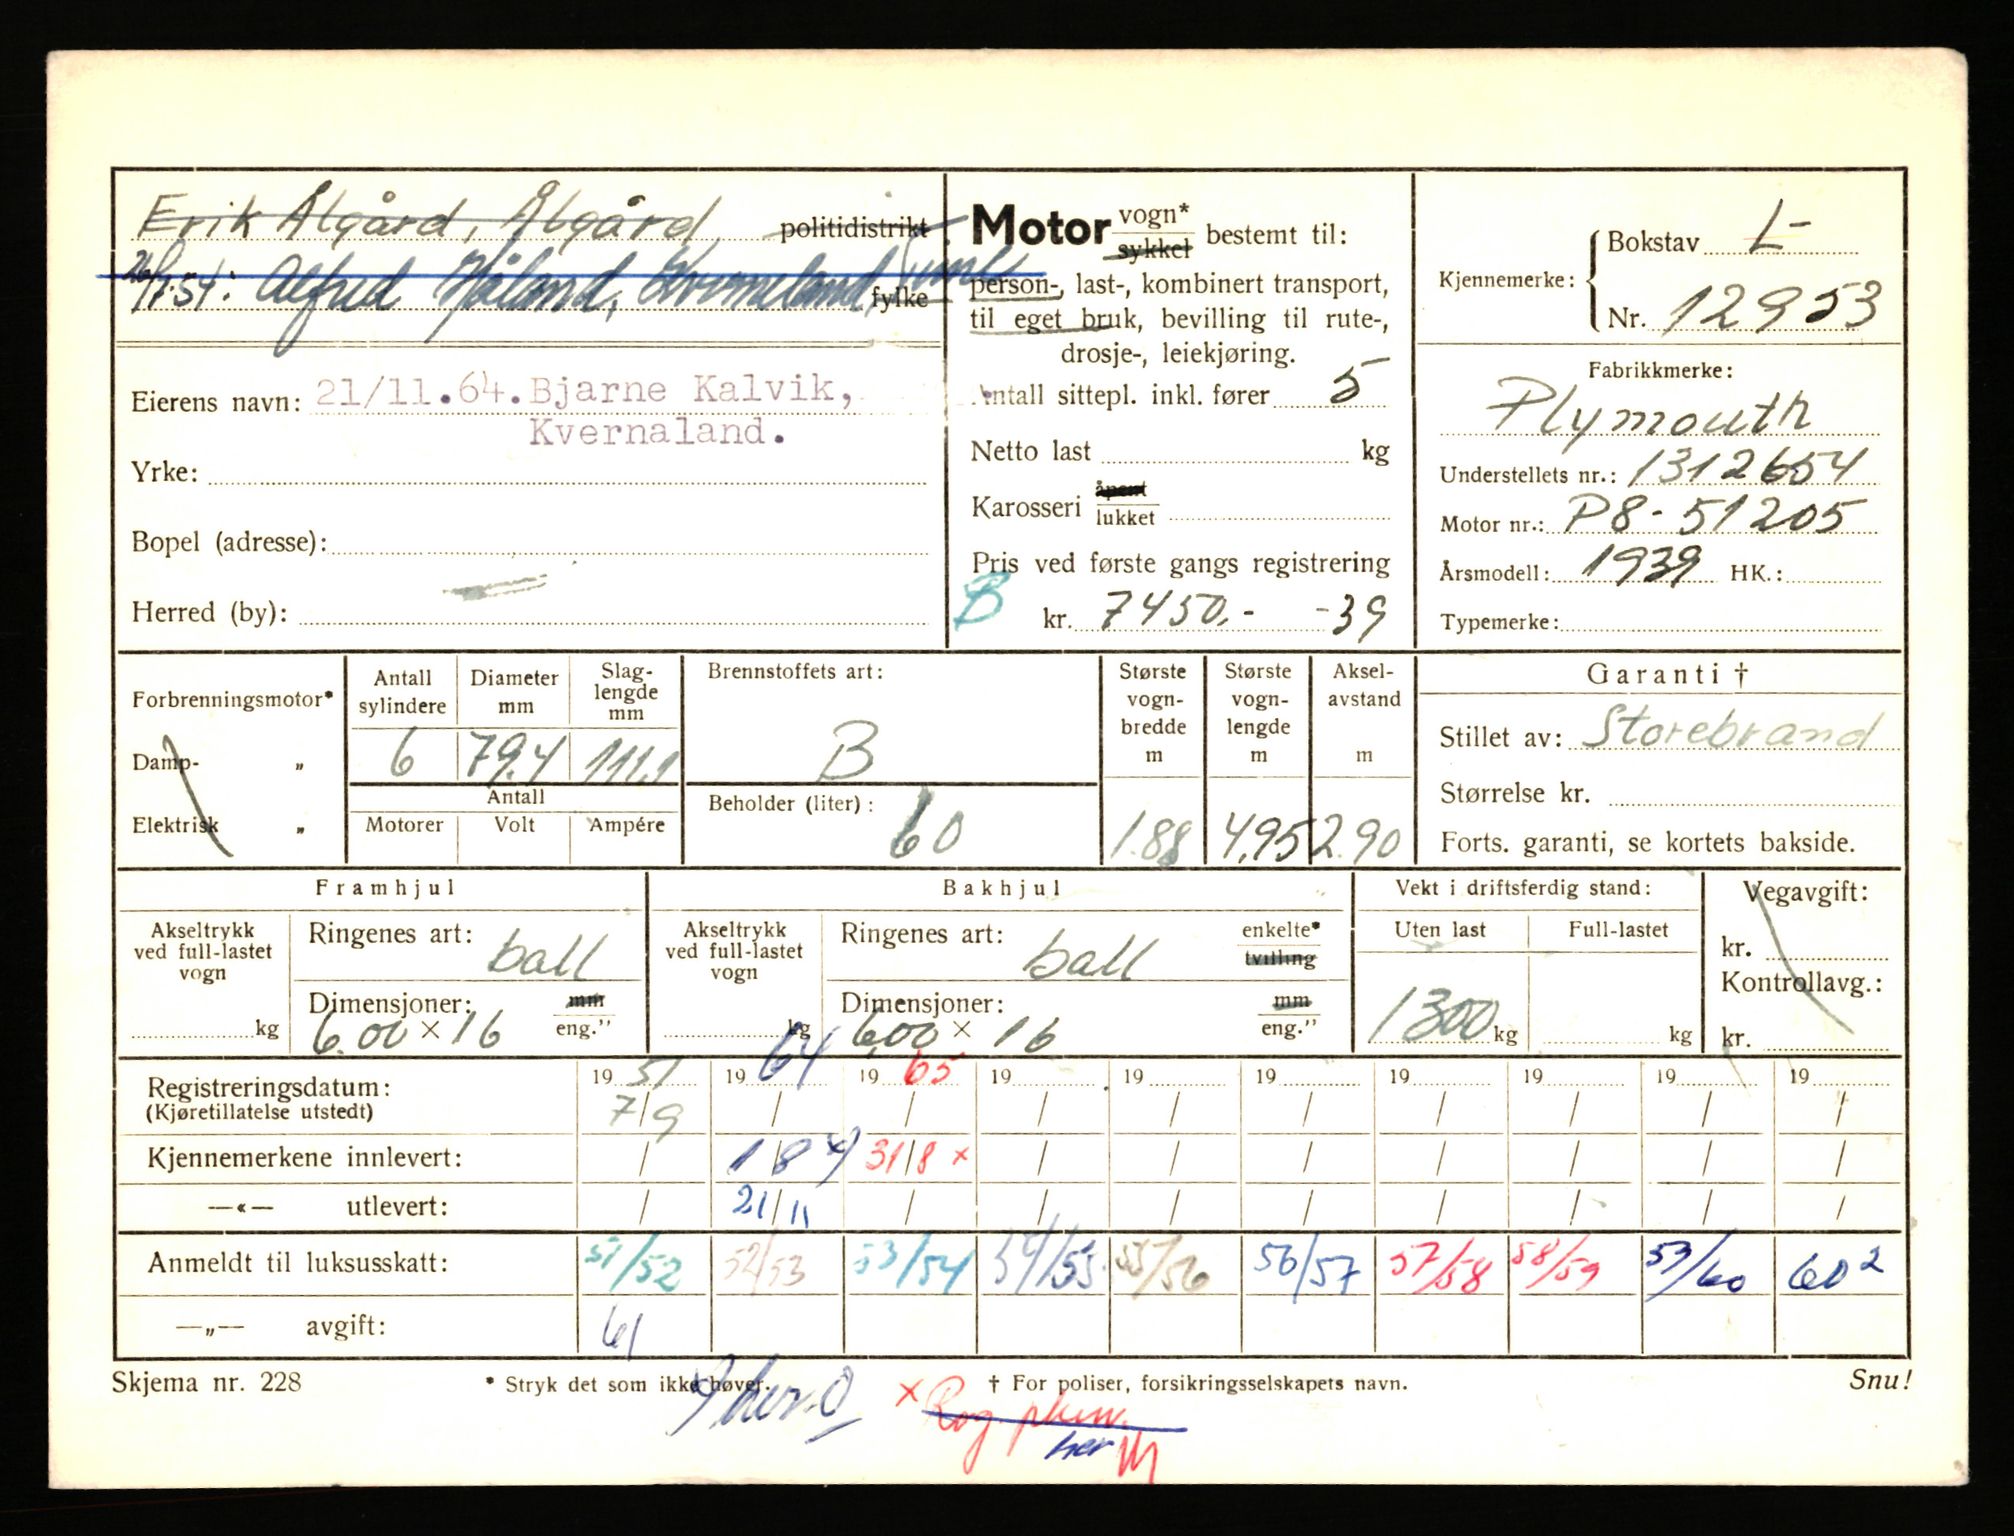 Erik Ålgård, Ålgård politidistrikt
26/11.54: Alfred Håland, fylke
Eierens navn: 21/11.64. Bjarne Kalvik,
Kvernaland.
Yrke:
Bopel (adresse):
Herred (by):
Motor vogn*
sykkel bestemt til:
person-, last-, kombinert transport,
til eget bruk, bevilling til rute-,
drosje-, leiekjøring.
Antall sittepl. inkl. fører 5
Netto last kg
Karosseri åpent
lukket
Pris ved første gangs registrering
B kr. 7450.- -39
Kjennemerke: Bokstav L-
Nr. 12953
Fabrikkmerke:
Plymouth
Understellets nr.: 1312654
Motor nr.: P8-51205
Årsmodell: 1939 HK.:
Typemerke:
Forbrenningsmotor*
Damp- „
Elektrisk „
Antall sylindere Diameter mm Slag-lengde mm
6 79.4 111,1
Antall
Motorer Volt Ampére
Brennstoffets art:
B
Beholder (liter):
60
Største vogn-bredde m
1.88
Største vogn-lengde m
4,95
Aksel-avstand m
2.90
Garanti †
Stillet av: Storebrand
Størrelse kr.
Forts. garanti, se kortets bakside.
Framhjul
Akseltrykk
ved full-lastet
vogn
kg
Ringenes art: ball
Dimensjoner: mm
6.00 × 16 eng.”
Bakhjul
Akseltrykk
ved full-lastet
vogn
kg
Ringenes art: ball enkelte*
tvilling
Dimensjoner: mm
6,00 × 16 eng.”
Vekt i driftsferdig stand:
Uten last Full-lastet
1300 kg kg
Vegavgift:
kr.
Kontrollavg.:
kr.
Registreringsdatum: 19 51 19 64 19 65 19 19 19 19 19 19 19
(Kjøretillatelse utstedt) 7/9 / / / / / / / / /
Kjennemerkene innlevert: / 1/8 31/8 × / / / / / / /
—«— utlevert: / 21/11 / / / / / / / /
Anmeldt til luksusskatt: 51/52 52/53 53/54 54/55 55/56 56/57 57/58 58/59 59/60 60 2
—„— avgift: 61
Skjema nr. 228 * Stryk det som ikke høver. † For poliser, forsikringsselskapets navn. Snu!
× Rog.
her